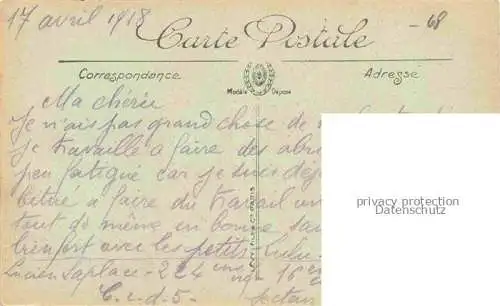 17 avril 1918
- 68
Carte Postale
Correspondance
Adresse
Modèle Déposé
Ma chérie
Je n'ais pas grand chose de
je travaille a faire des abri
peu fatigué car je suis déj
bitué a faire du travail
tout de même en bonne san
bien fort avec les petits
Lucien Laplace - 224 16
C.i.d.5- Secteu
LEVY FILS & Cie PARIS
privacy protection
Datenschutz